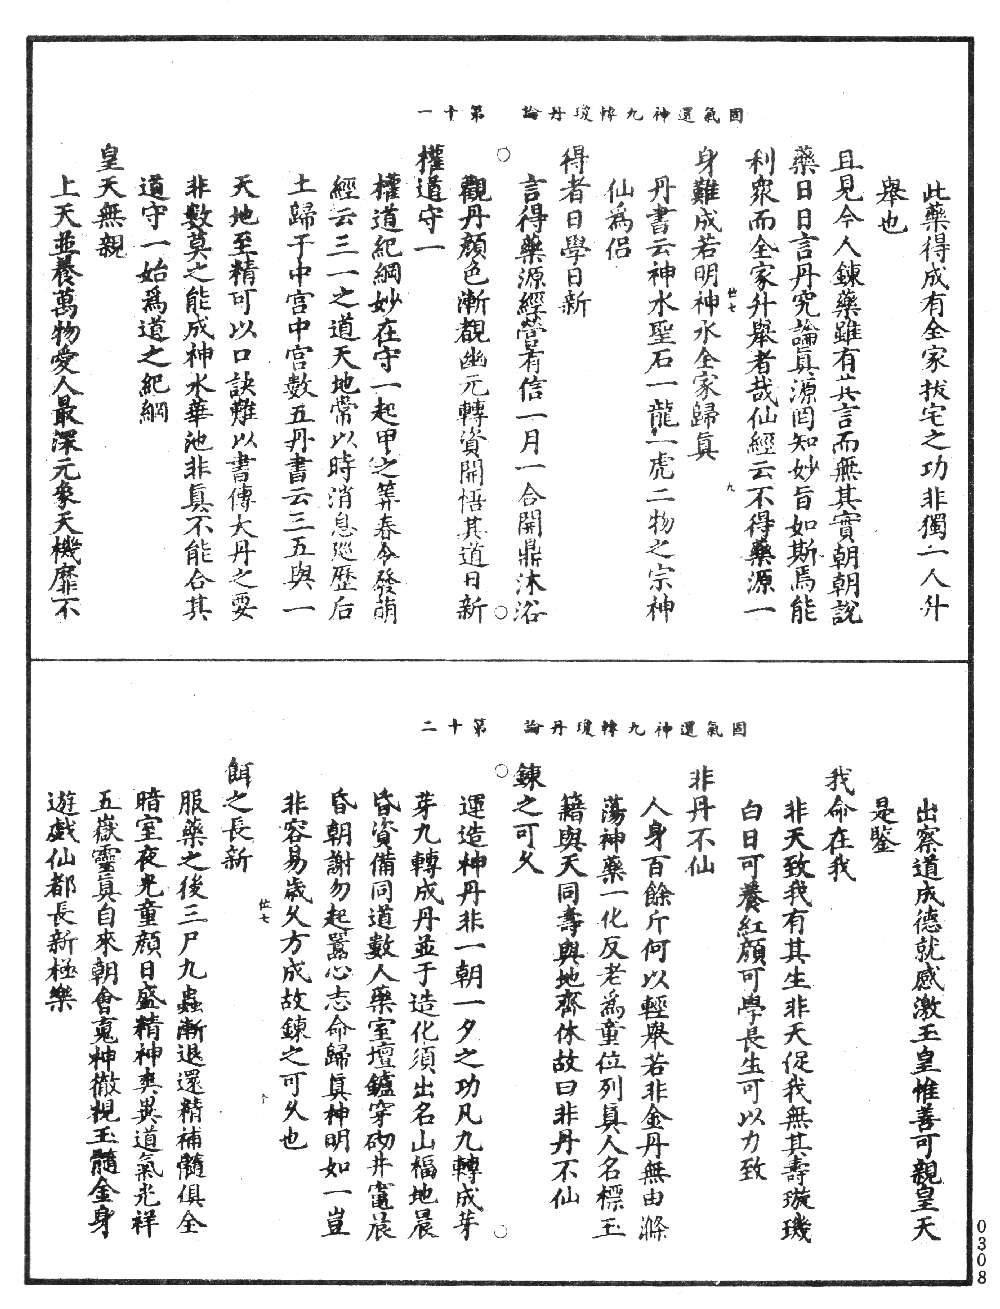 固氣還神九轉瓊丹論　第十一
此藥得成有全家拔宅之功非獨一人升
舉也
且見今人鍊藥雖有其言而無其實朝朝說
藥日日言丹究論真源罔知妙旨如斯焉能
利衆而全家升舉者哉仙經云不得藥源一
身難成若明神水全家歸真
丹書云神水聖石一龍一虎二物之宗神
仙爲侶
得者日學日新
言得藥源經營有信一月一合開鼎沐浴
觀丹顏色漸覩幽元轉資開悟其道日新
權道守一
權道紀綱妙在守一起甲之筭春令發萌
經云三一之道天地常以時消息巡歷后
土歸于中宫中宫數五丹書云三五與一
天地至精可以口訣難以書傳大丹之要
非數莫之能成神水華池非真不能合其
道守一始爲道之紀綱
皇天無親
上天並養萬物愛人最深元象天機靡不
固氣還神九轉瓊丹論　第十二
出察道成德就感激玉皇惟善可親皇天
是鑒
我命在我
非天致我有其生非天促我無其壽璇璣
白日可養紅顏可學長生可以力致
非丹不仙
人身百餘斤何以輕舉若非金丹無由滌
蕩神藥一化反老爲童位列真人名標玉
籍與天同壽與地齊休故曰非丹不仙
鍊之可久
運造神丹非一朝一夕之功凡九轉成芽
芽九轉成丹並于造化須出名山福地晨
昏資備同道數人藥室壇鑪穿砌井竈晨
昏朝謝勿起囂心志命歸真神明如一豈
非容易歲久方成故鍊之可久也
餌之長新
服藥之後三尸九蟲漸退還精補髓俱全
暗室夜光童顏日盛精神爽異道氣光祥
五嶽靈真自來朝會䰟神徹視玉髓金身
遊戲仙都長新極樂
0308